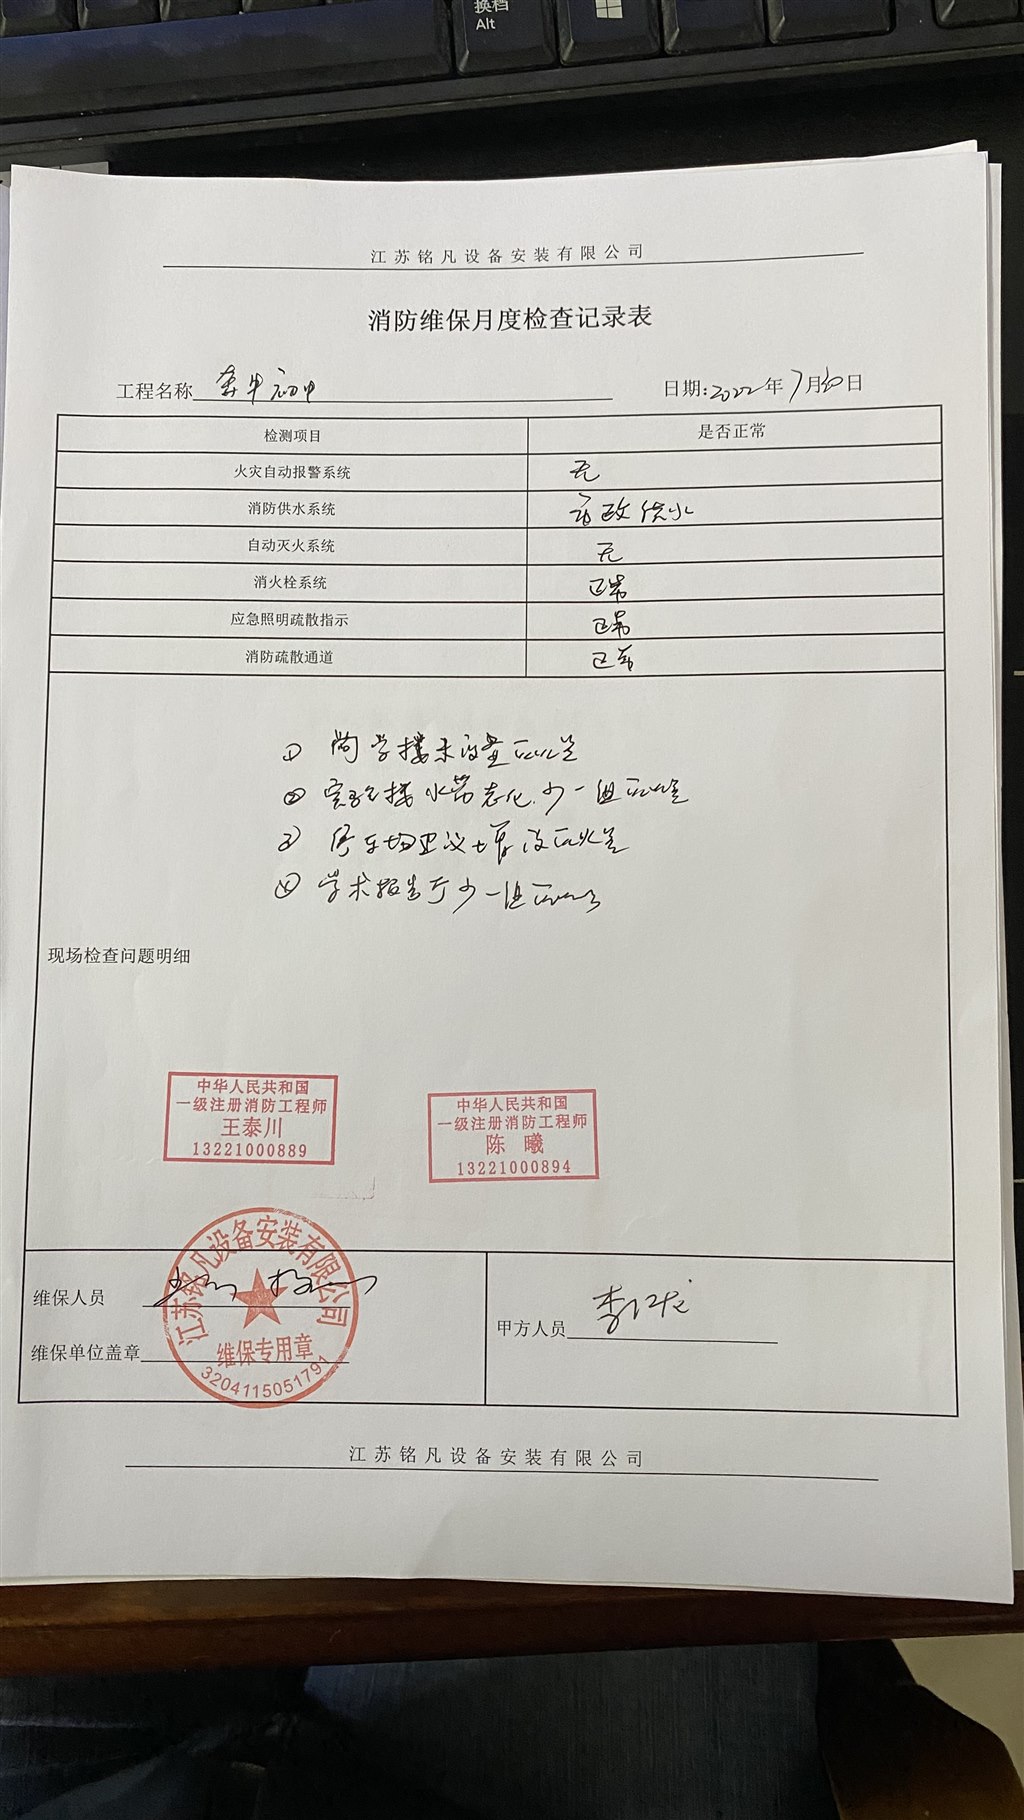 换档
Alt
江苏铭凡设备安装有限公司
消防维保月度检查记录表
工程名称 奔牛初中
日期:2022年7月30日
检测项目 是否正常
火灾自动报警系统 无
消防供水系统 市政供水
自动灭火系统 无
消火栓系统 正常
应急照明疏散指示 正常
消防疏散通道 正常
① 尚学楼未设置灭火器
② 实验楼水带老化,少一组灭火器
③ 停车场建议增设灭火器
④ 学术报告厅少一组灭火器
现场检查问题明细
中华人民共和国
一级注册消防工程师
王泰川
13221000889
中华人民共和国
一级注册消防工程师
陈 曦
13221000894
维保人员
维保单位盖章
江苏铭凡设备安装有限公司
维保专用章
3204115051791
甲方人员
江苏铭凡设备安装有限公司